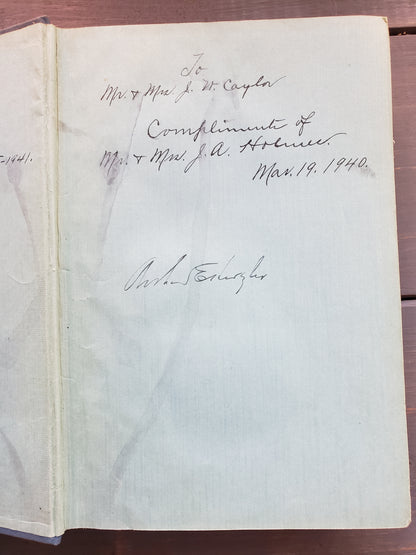 To
Mr. & Mrs. J. W. Caylor
Compliments of
Mr. & Mrs. J. A. Holmes.
Mar. 19. 1940.
-1941.